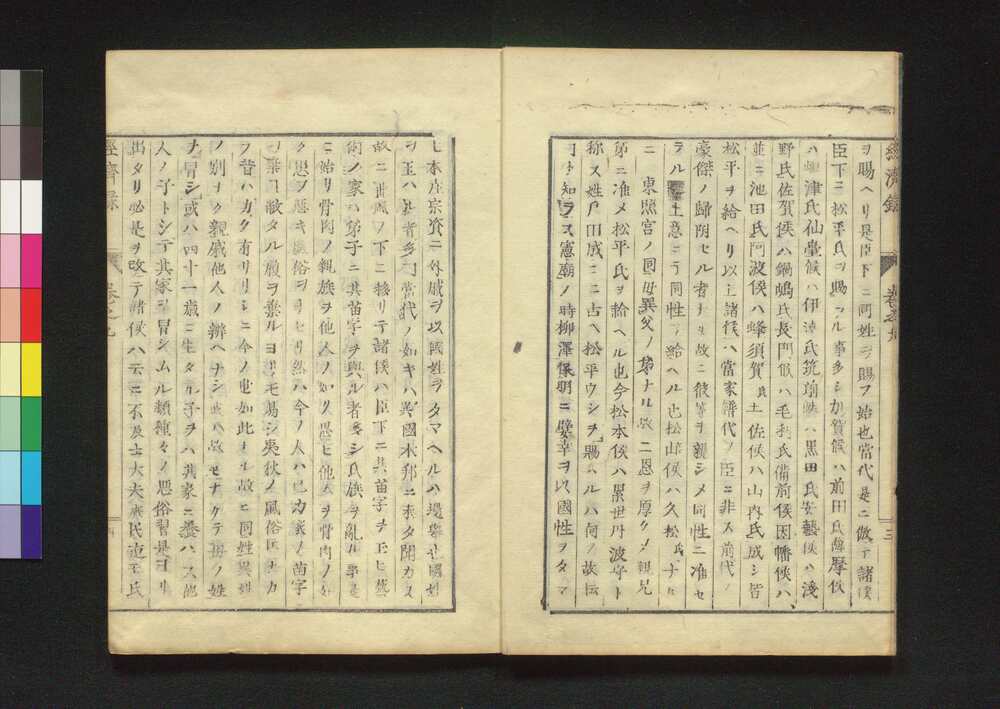 ヲ賜ヘリ是臣下ニ同姓ヲ賜フ始也當代是ニ倣テ諸侯
臣下ニ松平氏ヲ賜ハル事多シ加賀候ハ前田氏薩摩侯
ハ嶋津氏仙臺候ハ伊達氏筑前侯ハ黒田氏安藝侯ハ淺
野氏佐賀侯ハ鍋嶋氏長門侯ハ毛利氏備前侯因幡侯ハ
並ニ池田氏阿波侯ハ蜂須賀氏土佐侯ハ山内氏成シ皆
松平ヲ給ヘリ以上諸侯ハ當家譜代ノ臣ニ非ス前代ノ
豪傑ノ歸附セル者ナル故ニ彼等ヲ親シメ同性ニ准セ
ラル 主意ニテ同性ヲ給ヘル也松山侯ハ久松氏ナル
ニ 東照宮ノ同母異父ノ弟ナル故ニ恩ヲ厚クメ親兄
弟ニ准メ松平氏ヲ給ヘル也今松本侯ハ累世丹波守ト
称ス姓戸田成ニ占ヘ松平ウシヲ賜ハルハ何ノ故伝
ヿヲ知ラス憲廟ノ時柳澤保明ニ嬖幸ヲ以國性ヲタマ
ヒ本庄宗資ニ外戚ヲ以國姓ヲタマヘルハ 也國姓
ヲ玉ハル者多 當代ノ如キハ異國本邦ニ未タ聞カス
故ニ此風ノ下ニ移リテ諸侯ハ臣下ニ其苗字ヲ玉ヒ藝
術ノ家ハ弟子ニ其苗字ヲ與ル者多シ氏族ヲ乱ル事是
ニ始リ骨肉ノ親族ヲ他人ノ如ク思ヒ他人ヲ骨肉ノ如
ク思フ悪キ風俗ヲナセリ然ハ今ノ人ハ己カ家ノ苗字
ヲ棄ル敝タル履ヲ棄ルヨリモ易シ夷狄ノ風俗
フ昔ハカク有リリシニ今ノ世如此ナル故ニ同姓異姓
ノ別ヲク親戚他人ノ辨ヘナシ 故ナクテ 姓
ヲ冒シ或ハ四十一歳ニ生タル子ヲハ其家ニ養ハス他
人ノ子トシテ其家ヲ冒シムル類種々ノ悪俗習是ヨリ
出タリ必是ヲ改テ諸侯ハ云ニ不及士大夫庶民迠モ氏
經濟録
卷之九
三
經濟録
卷之九
四